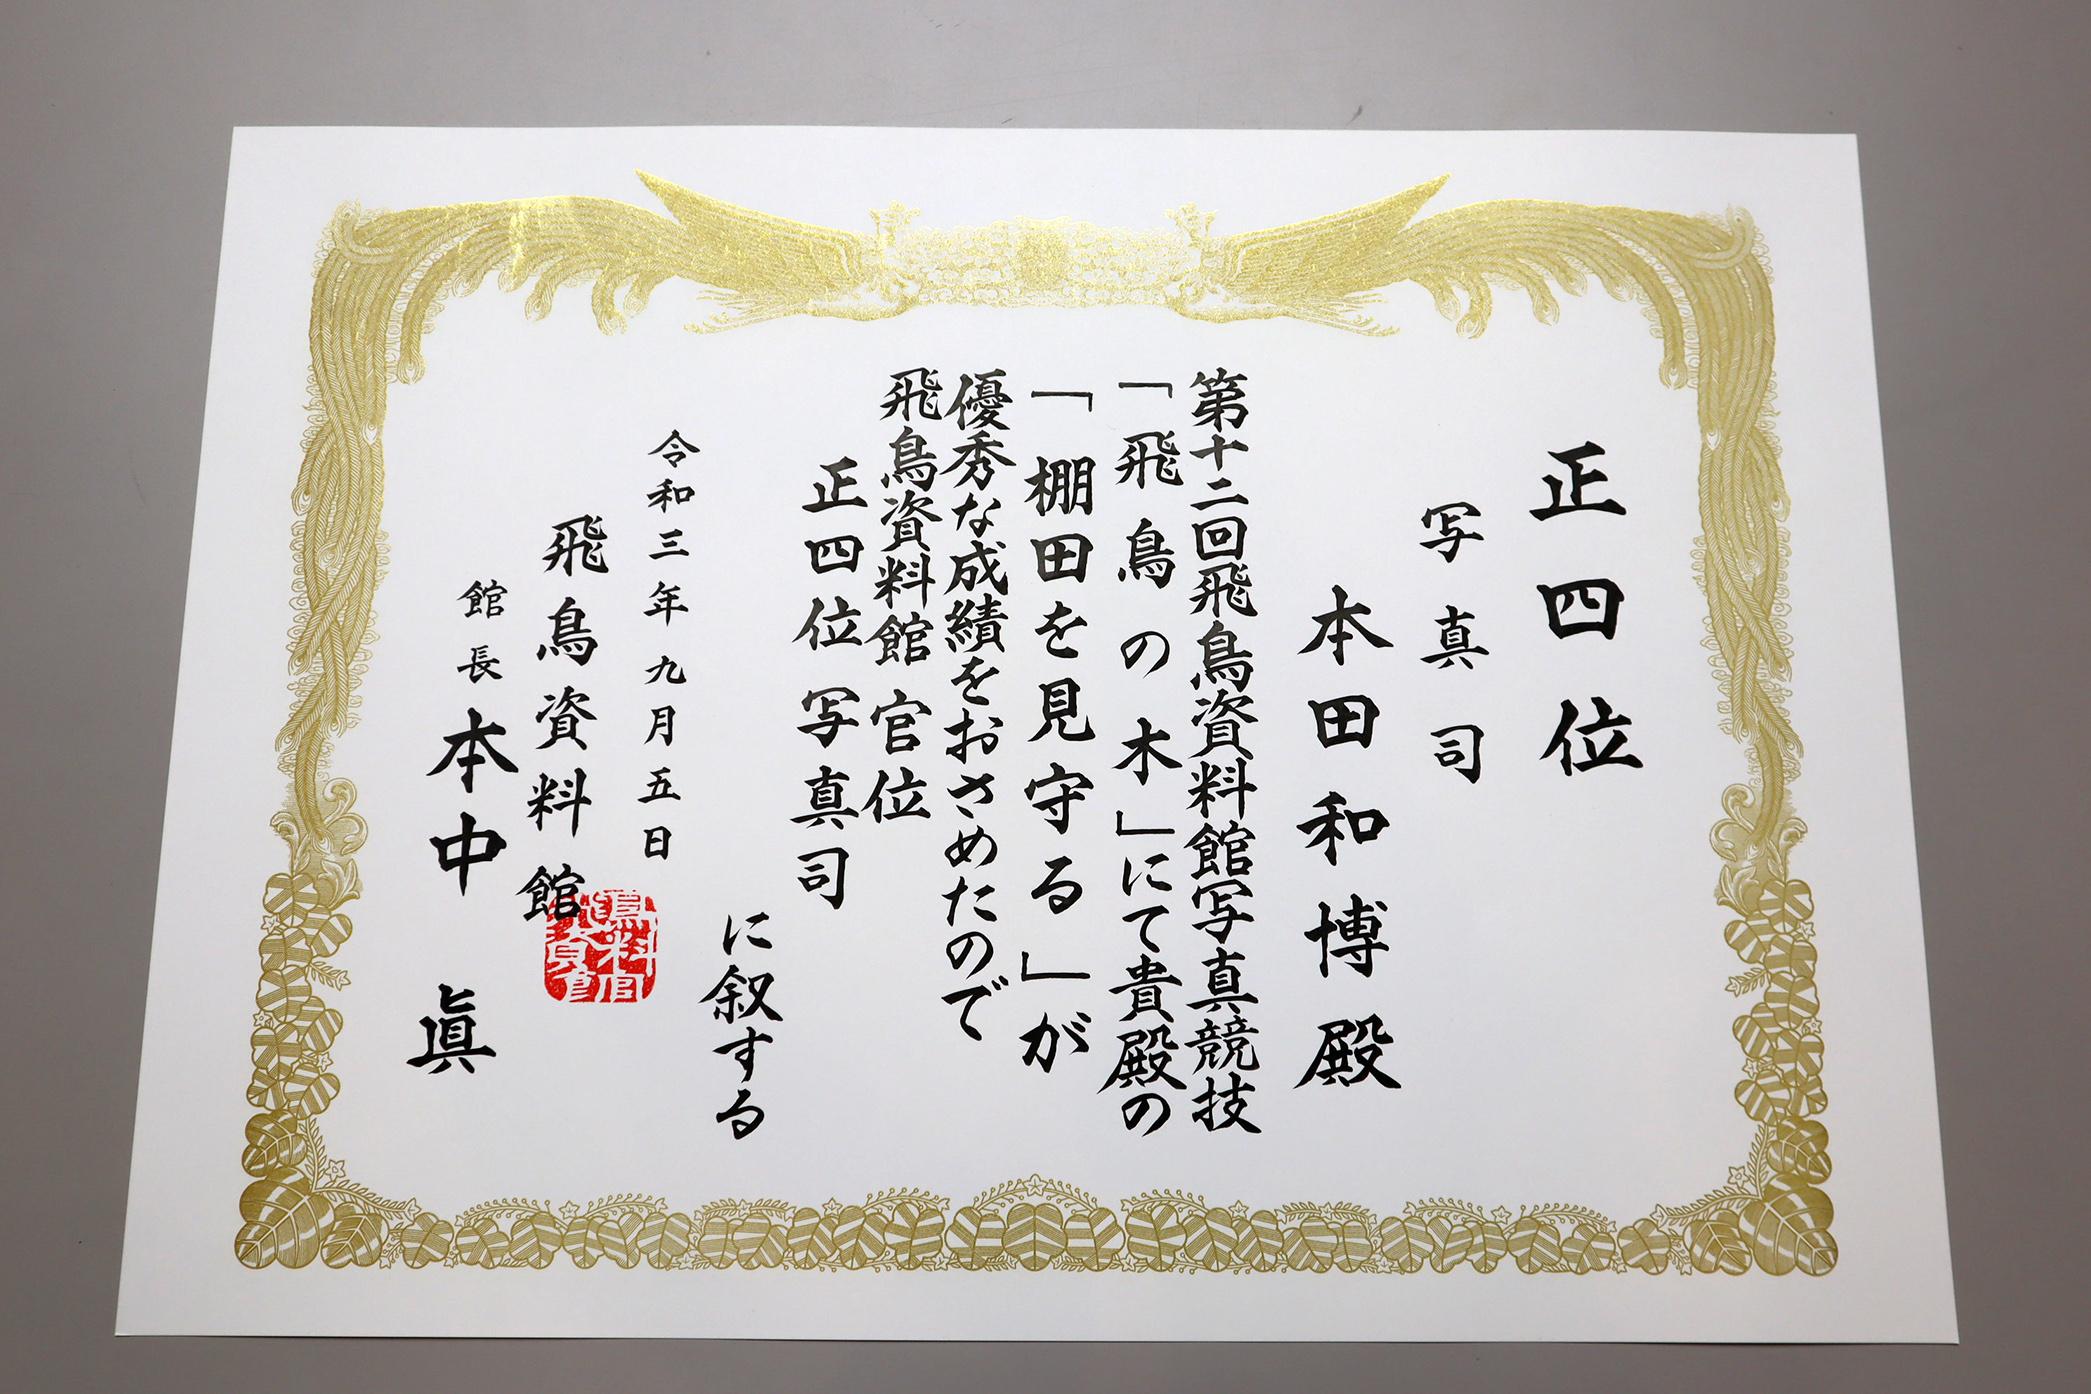 正四位
写真司
本田和博殿
第十二回飛鳥資料館写真競技
「飛鳥の木」にて貴殿の
「棚田を見守る」が
優秀な成績をおさめたので
飛鳥資料館官位
正四位写真司
に叙する
令和三年九月五日
飛鳥資料館
館長本中眞